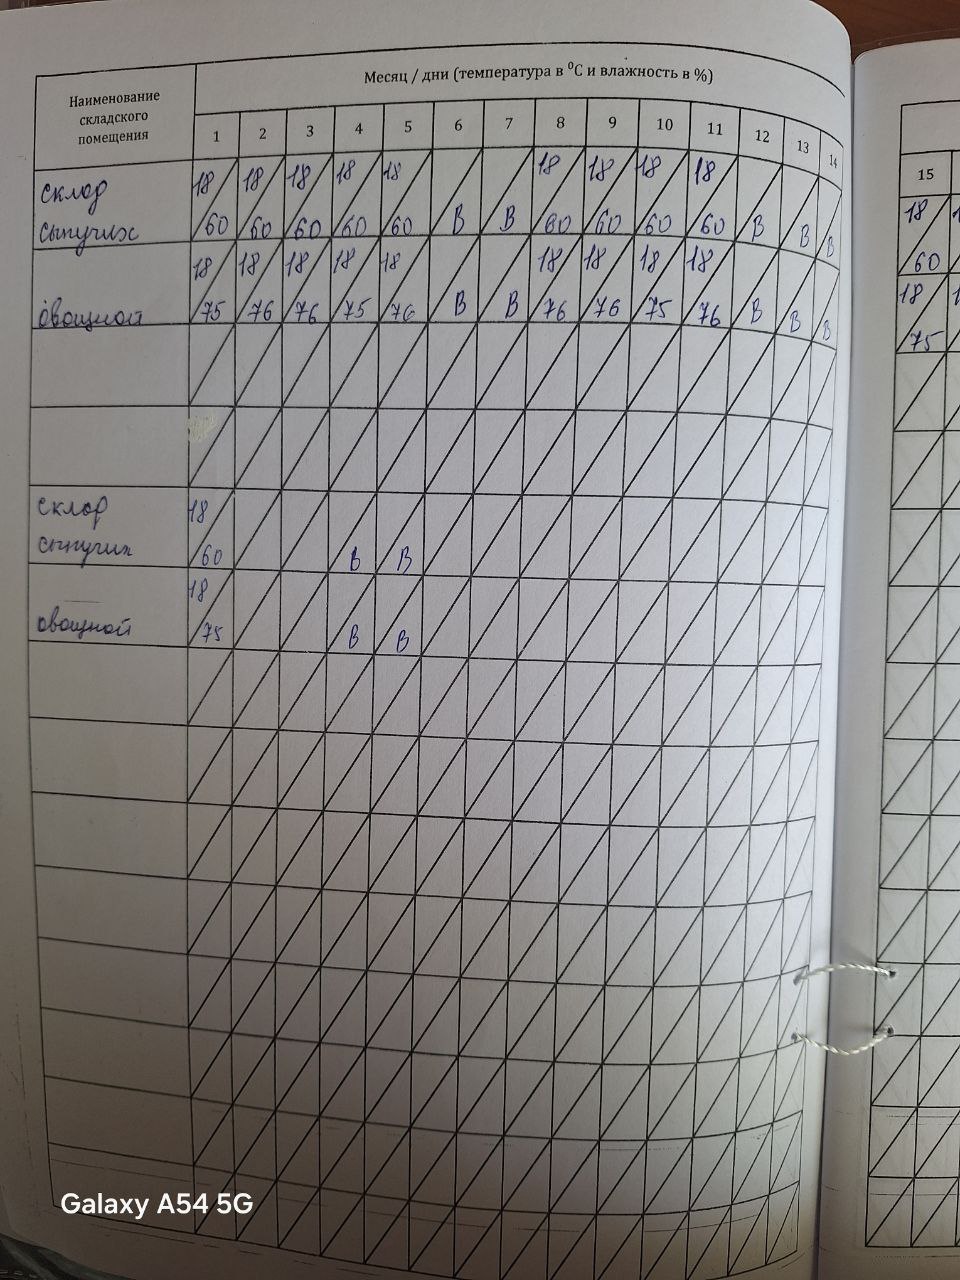 Наименование
складского
помещения
Месяц / дни (температура в ⁰С и влажность в %)
1 2 3 4 5 6 7 8 9 10 11 12 13 14
15
склад 18 18 18 18 18 18 18 18 18
18
сыпучих 60 60 60 60 60 В В 60 60 60 60 В В В
60
18 18 18 18 18 18 18 18 18
18
овощной 75 76 76 75 76 В В 76 76 75 76 В В В
75
склад 18
сыпучих 60 В В
18
овощной 75 В В
Galaxy A54 5G